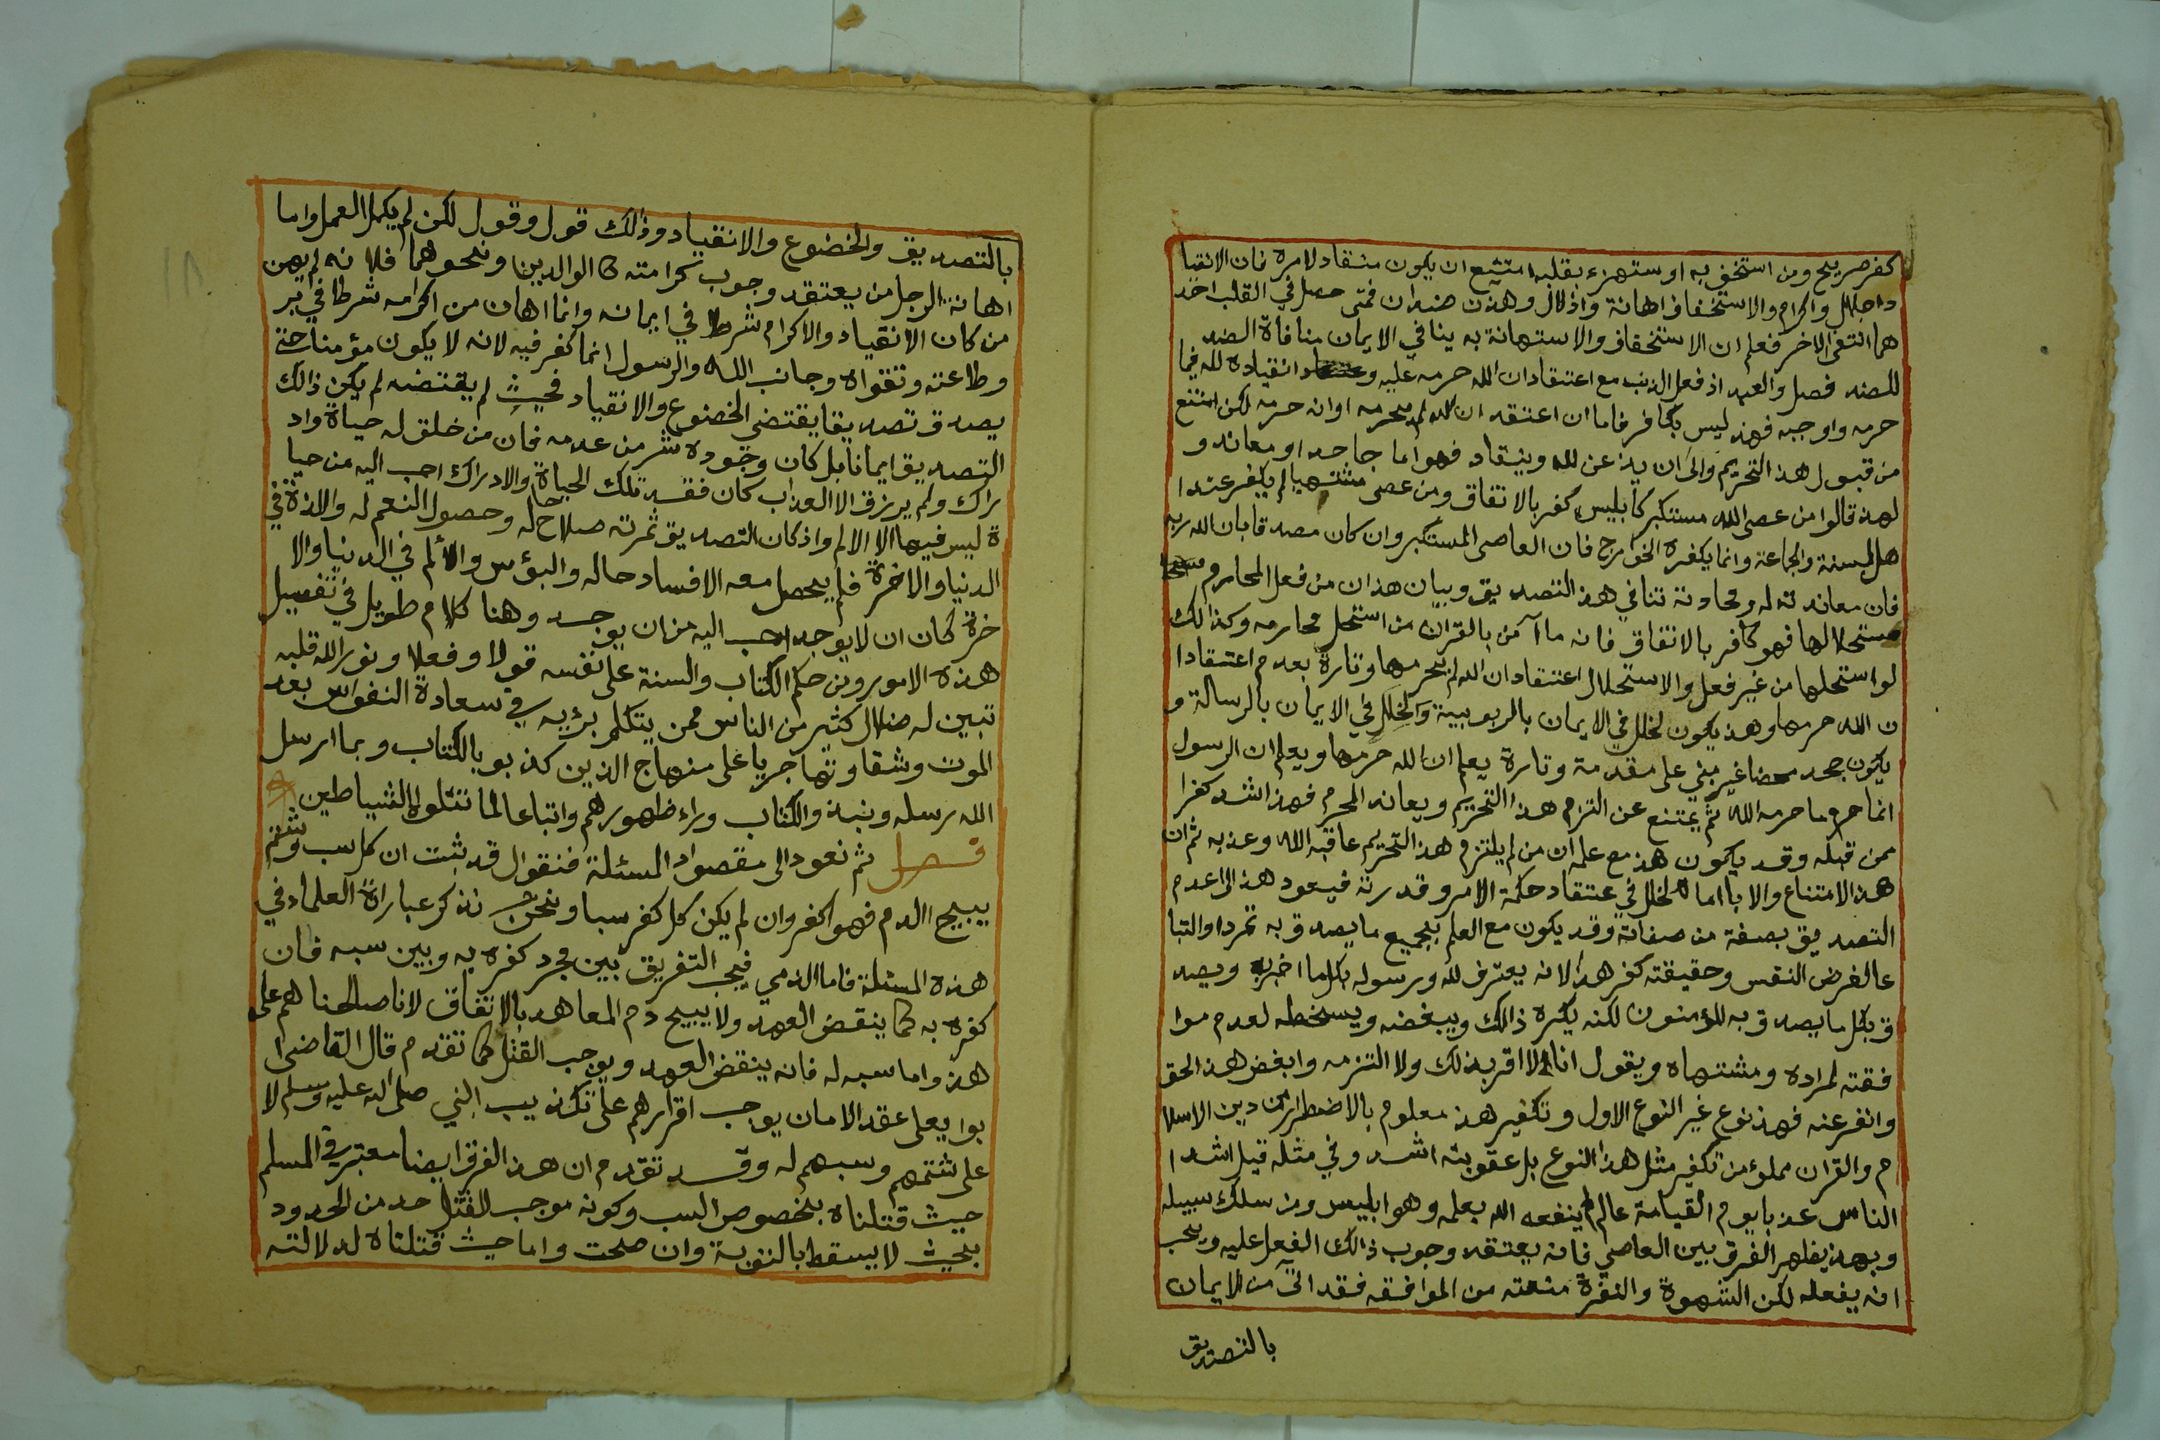 كفر صريح ومن استخف به او ستهزء بقلبه امتنع ان يكون منقاد لامره فان الانقيا
د اجلال واكرام والاستخفاف اهانة واذلال وهذن ضدان فمتى حصل في القلب احد
هما انتفى الاخر فعلم ان الاستخفاف والاستهانة به ينافي الايمان منافاة الضد
للضد فصل والعبد اذ فعل الذنب مع اعتقاد ان الله حرمه عليه و انقياده لله فيما
حرمه واوجبه فهذ ليس بكافر فاما ان اعتقد ان الله لم يحرمه او انه حرمه لكن امتنع
من قبول هذ التحريم والى ان يذعن لله وينقاد فهو اما جاحد او معاند و
لهذ قالوا من عصى الله مستكبر كابليس كفر بالاتفاق ومن عصى مشتهيا لم يكفر عند ا
هل السنة والجماعة وانما يكفره الخوارج فان العاصى المستكبر وان كان مصدقا بان الله ربه
فان معاندته له ومحادته تنافي هذ التصديق وبيان هذ ان من فعل المحارم
مستحلا لها فهو كافر بالاتفاق فانه ما آمن بالقران من استحل محارمه وكذالك
لو استحلها من غير فعل والاستحلال اعتقاد ان الله لم يحرمها وتارة بعدم اعتقاد ا
ن الله حرمها وهذ يكون لخلل في الايمان بالربوبيية ولخلل في الايمان بالرسالة و
يكون جحد محضا غير مبني على مقدمة وتارة يعلم ان الله حرمها ويعلم ان الرسول
انما حرم ما حرمه الله ثم يمتنع عن التزام هذا التحريم ويعاند المحرم فهذا اشد كفرا
ممن قبله وقد يكون هذ مع علمه ان من لم يلتزم هذ التحريم عاقبه الله وعذبه ثم ان
هذ الامتناع والابا اما لخلل في عتقاد حكمة الامر وقدرته فيعود هذ الى عدم
التصديق بصفة من صفاته وقد يكون مع العلم بجميع ما يصدق به تمردا او التبا
عا لغرض النفس وحقيقته كفر هذ الانه يعترف لله ورسوله بكل ما اخبر به ويصد
ق بكل ما يصدق به للؤمنون لكنه يكره ذالك ويبغضه ويسخطه لعدم موا
فقته لمراده ومشتهاه ويقول انا لا اقر بذلك ولا التزمه وابغض هذ الحق
وانفر عنه فهذ نوع غير النوع الاول وتكفير هذ معلوم بالاضطرار من دين الاسلا
م والقران مملؤ من تكفير مثل هذا النوع بل عقوبته اشد وفي مثله قيل اشد ا
الناس عذبا يوم القيامة عالم لم ينفعه الله بعلمه وهو ابليس ومن سلك سبيله
وبهذ يظهر الفرق بين العاصي فانه يعتقد وجوب ذالك الفعل عليه ويحب
انه يفعله لكن الشهوة والنفرة منعته من الموافقه فقد اتى من الايمان
بالتصديق
بالتصديق والخضوع والانقياد وذلك قول وقول لكن لم يكمل العمل واما
اهانة الرجل من يعتقد وجوب كرامته كالوالدين ونحوهما فلانه لم يهن
من كان الانقياد والاكرام شرط في ايمانه وانما اهان من اكرامه شرطا في بر
وطاعته وتقواه وجانب الله والرسول انما كفر فيه لانه لا يكون مؤمنا حتى
يصدق تصديقا يقتضي الخضوع والانقياد فحيث لم يقتضه لم يكن ذالك
التصديق ايمانا بل كان وجوده شر من عدمه فان من خلق له حياة واد
راك ولم يرزق الا العذاب كان فقد تلك الحياة والادراك احب اليه من حيا
ة ليس فيها الا الالم واذ كان التصديق ثمرته صلاح حاله وحصول النعم له والاذة في
الدنيا والاخرة فلم يحصل معه الافساد حاله والبؤس والألم في الدنيا والا
خرة كان ان لا يوجد احب اليه من ان يوجد وهنا كلام طويل في تفصيل
هذه الامور ومن حكم الكتاب والسنة على نفسه قولا وفعلا ونور الله قلبه
تبين له ضلال كثير من الناس ممن يتكلم برئيه في سعادة النفواس بعد
الموت وشقاوتها جريا على منهاج الذين كذبو بالكتاب وبما ارسل
الله رسله ونبذ والكتاب وراء ظهورهم واتباعا لما تتلوه الشياطين
فصل ثم نعود الى مقصواد المسئلة فنقول قد ثبت ان كل سب وشتم
يبيح الدم فهو اكفر وان لم يكن كل كفر سبا ونحن نذكر عباراة العلماء في
هذه المسئلة فاما الذمي فيجب التفريق بين مجرد كفره به وبين سبه فان
كفره به كما ينقض العهد ولا يبيح دم المعاهد بالاتفاق لانا صالحناهم على
هذ واما سبه له فانه ينقض العهد ويوجب القتل كما تقدم قال القاضي ا
بوا يعلى عقد الامان يوجب اقرارهم على تكذيب النبي صلى الله عليه وسلم لا
على شتمهم وسبهم له وقد تقدم ان هذ الفرق ايضا معتبر في المسلم
حيث قتلناه بخصوص السب وكونه موجب للقتل حد من الحدود
بحيث لا يسقط بالتوبة وان صلحت واما حيث قتلناه لدلالته